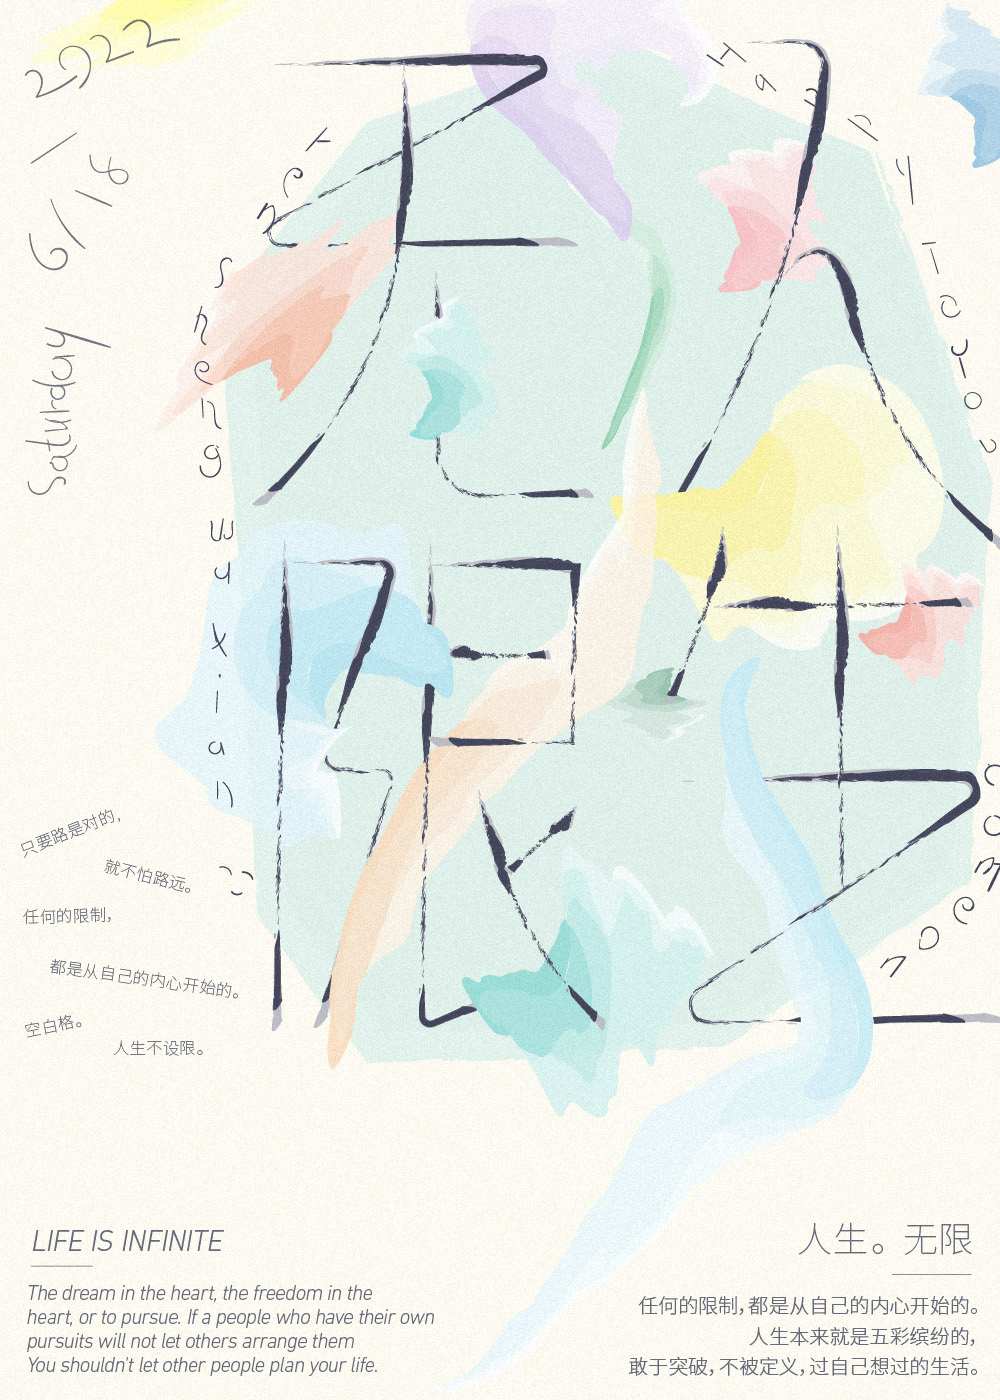 2022
6/18
Saturday
人生
无限
Ren
sheng
wu
xian
Happy
come on
只要路是对的，
就不怕路远。
任何的限制，
都是从自己的内心开始的。
空白格。
人生不设限。
LIFE IS INFINITE
The dream in the heart, the freedom in the
heart, or to pursue. If a people who have their own
pursuits will not let others arrange them
You shouldn't let other people plan your life.
人生。无限
任何的限制，都是从自己的内心开始的。
人生本来就是五彩缤纷的，
敢于突破，不被定义，过自己想过的生活。